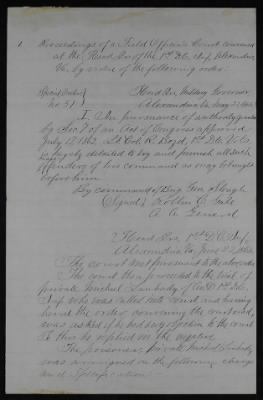 Proceedings of a Field Officers Court convened
at the Head Qrs of the 1st D.C. Inf. Alexandria
Va. by virtue of the following order.
Special Orders Head Qrs Military Governor
No. 51 Alexandria Va May 31 1863
I. In pursuance of authority given
by Sec 7 of an Act of Congress approved
July 17 1862. Lt Col. R. Boyd, 1st D.C. Vols
is hereby detailed to try and punish all such
offenders of his command as may be brought
before him
By command of Brig Gen Slough
Signed Rollin C. Gale
A. A. General
Head Qrs 1st D.C. Inf.
Alexandria Va. June 1st 1863
The court met pursuant to the above order
The court then proceeded to the trial of
private Michael of Co. D. 1st D.C.
Inf. who was called into court and having
heard the order convening the court read,
was asked if he had any objection to the court
To this he replied in the negative
The prisoner, Private Michael
was arraigned on the following charge
and Specification.